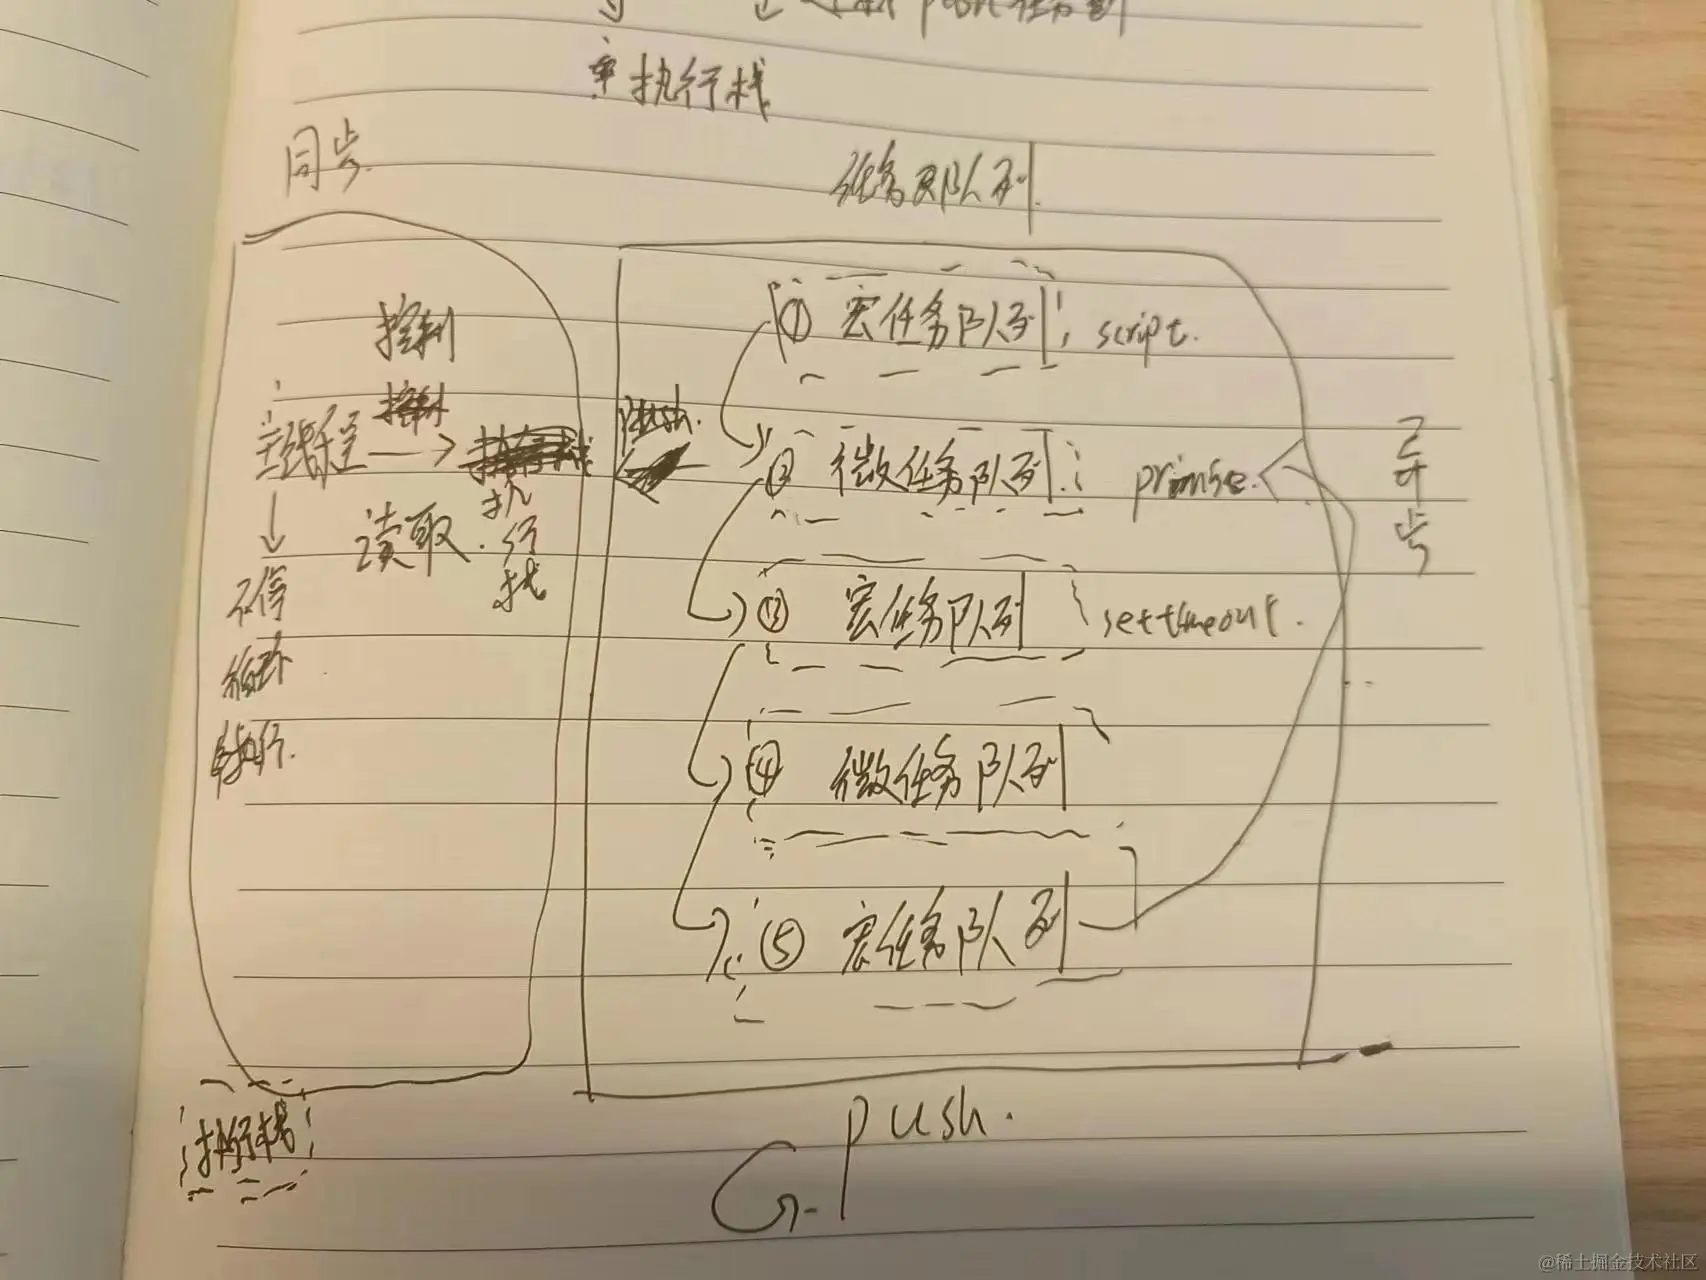 push任务到
执行栈
同步.
任务队列.
控制
主线程
执行栈
读取.
不停
循环
执行.
push.
① 宏任务队列 script.
② 微任务队列 promise.
③ 宏任务队列 settimeout.
④ 微任务队列
⑤ 宏任务队列
异步
执行栈
push.
@稀土掘金技术社区